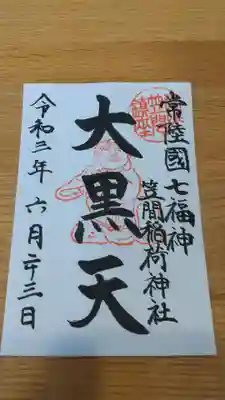 常陸國七福神
笠間稲荷神社
大黒天
令和三年六月廿三日